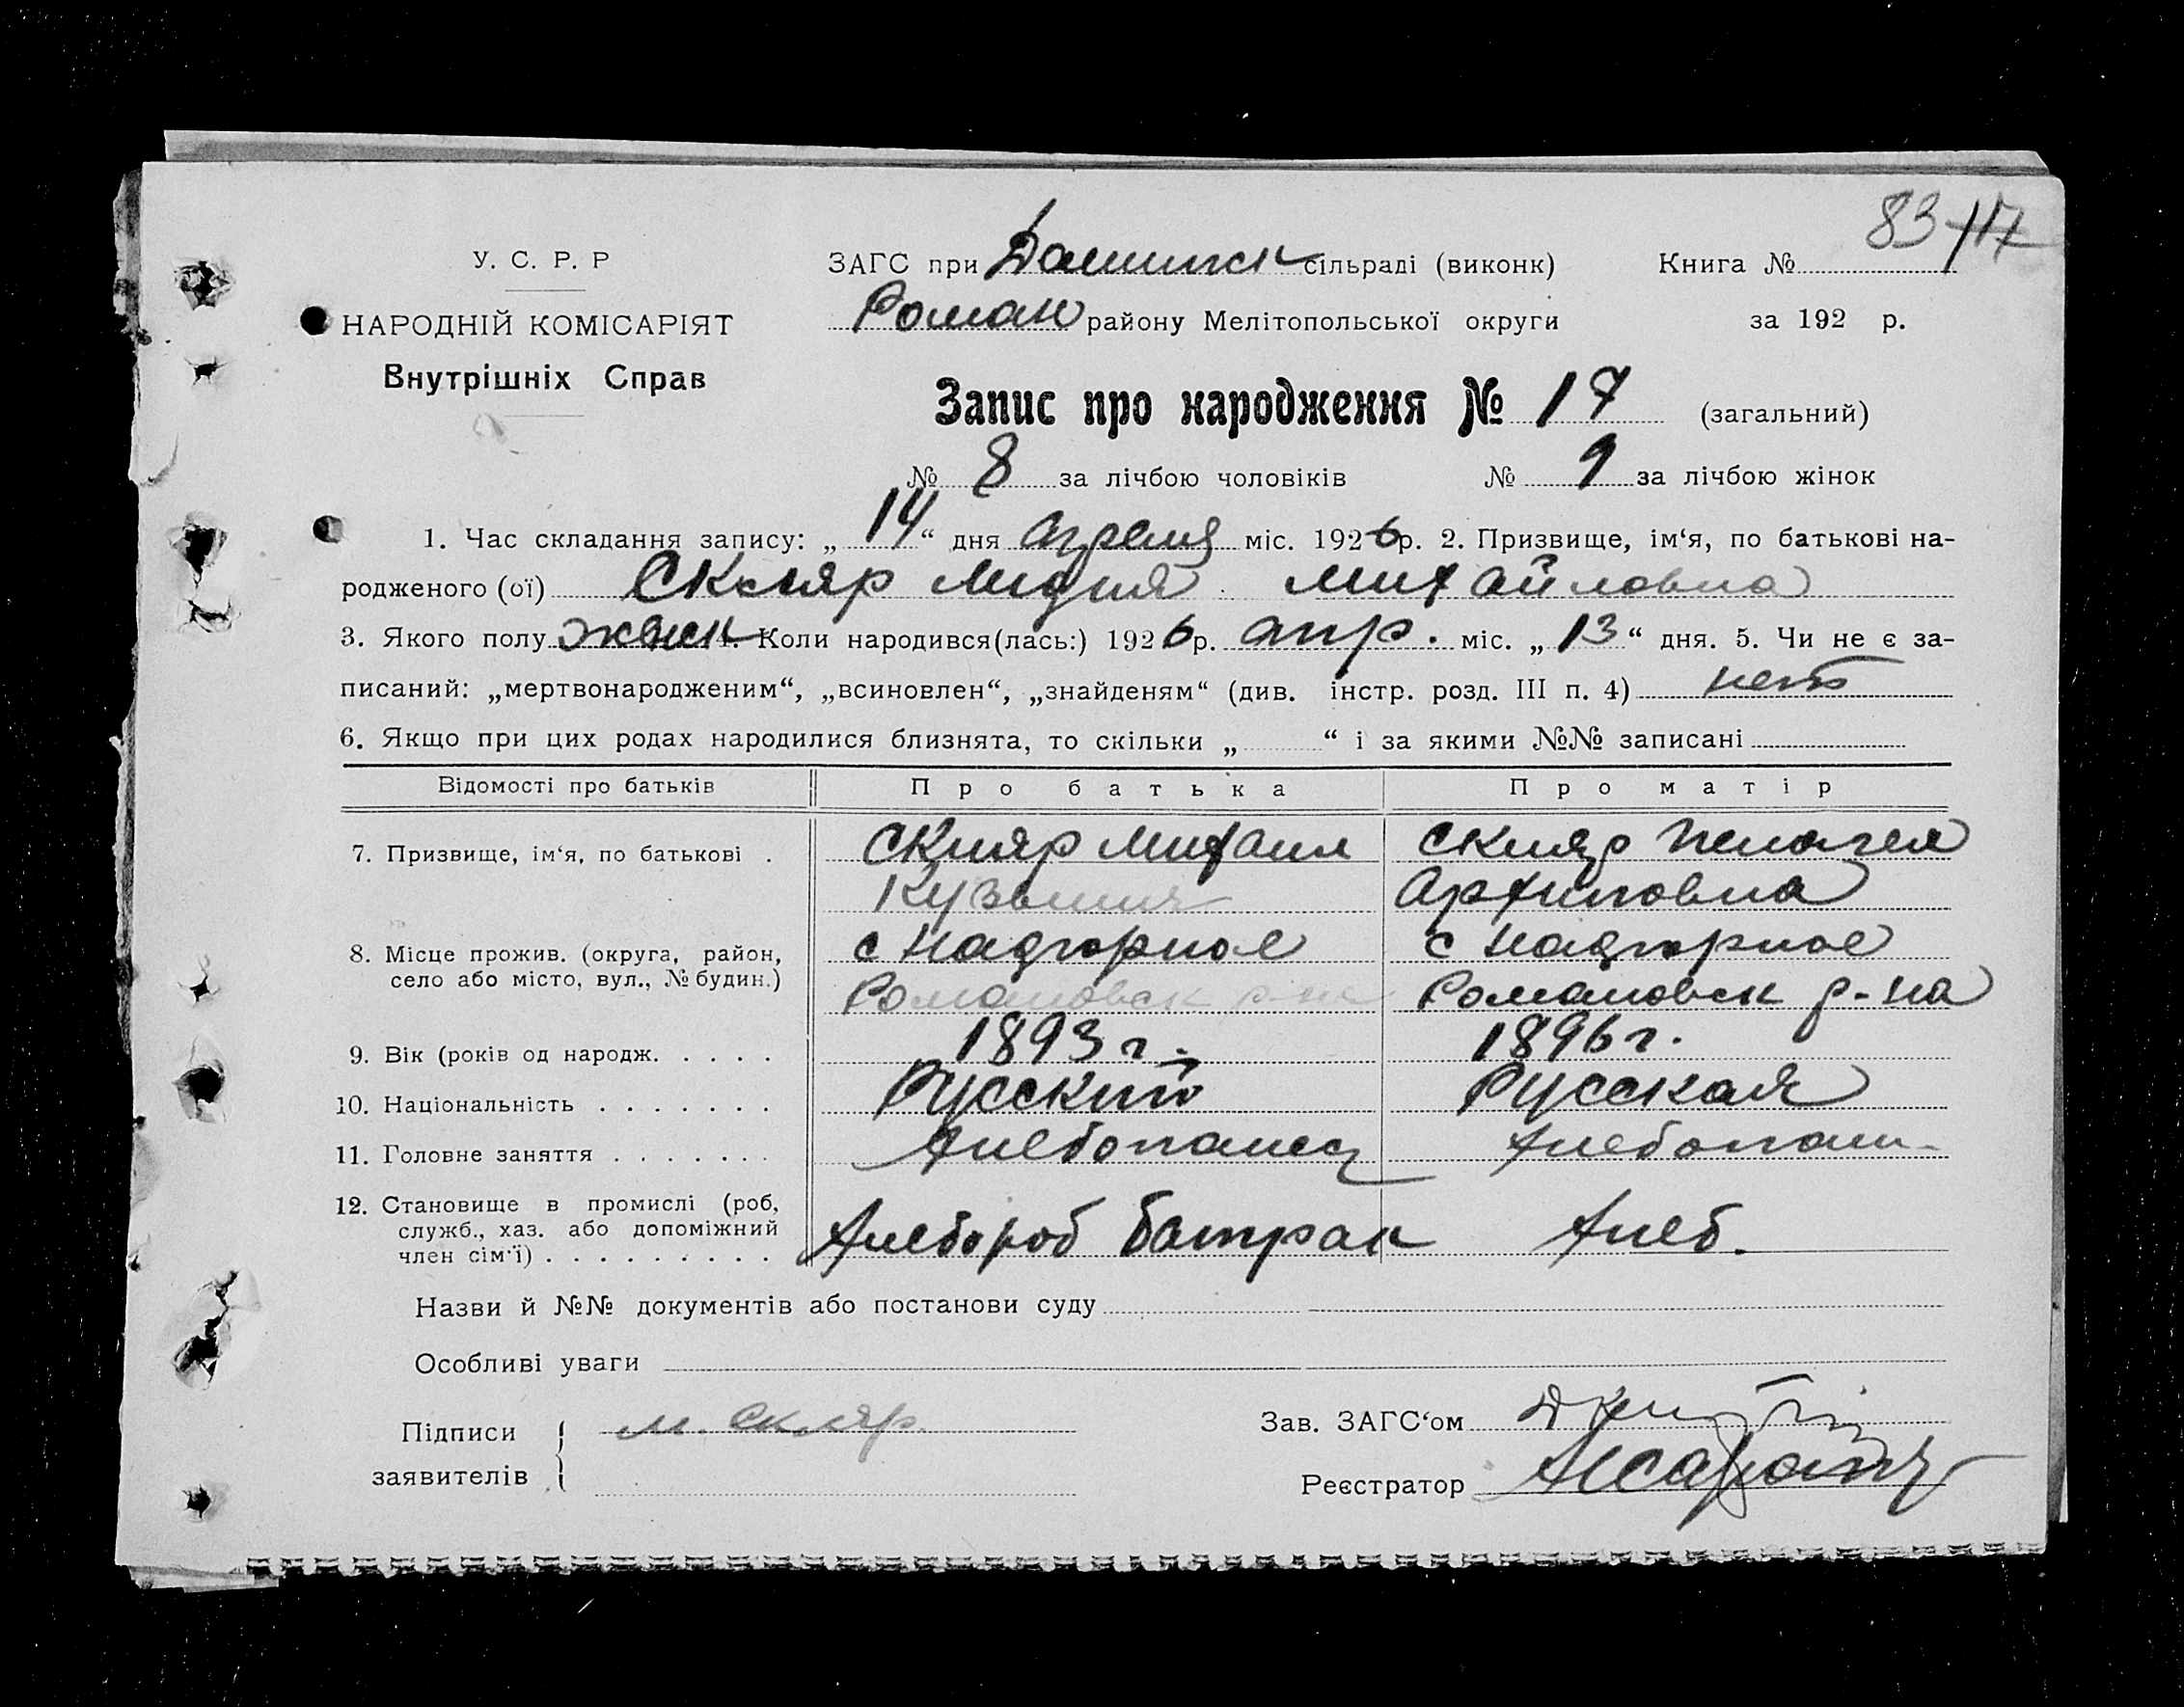 83 17
У. С. Р. Р
НАРОДНІЙ КОМІСАРІЯТ
Внутрішніх Справ
ЗАГС при сільраді (виконк)
Роман району Мелітопольської округи
Книга №
за 192 р.
Запис про народження № 17 (загальний)
№ 8 за лічбою чоловіків № 9 за лічбою жінок
1. Час складання запису: „ 14 “ дня апреля міс. 1926 р. 2. Призвище, ім‘я, по батькові на-
родженого (ої) Скляр Лидия Михайловна
3. Якого полу женск 4. Коли народився(лась:) 1926 р. апр. міс. „ 13 “ дня. 5. Чи не є за-
писаний: „мертвонародженим“, „всиновлен“, „знайденям“ (див. інстр. розд. III п. 4) нет
6. Якщо при цих родах народилися близнята, то скільки „ “ і за якими №№ записані
Відомості про батьків Про батька Про матір
7. Призвище, ім‘я, по батькові . Скляр Михаил Скляр Пелагея
Кузьмич Архиповна
8. Місце прожив. (округа, район, с Надгорное с Надгорное
село або місто, вул., № будин.) Романовск р-на Романовск р-на
9. Вік (років од народж. . . . . 1893 г. 1896 г.
10. Національність . . . . . . . Русский Русская
11. Головне заняття . . . . . . . Хлебопашец Хлебопаш-
12. Становище в промислі (роб,
служб., хаз. або допоміжний Хлебороб батрак Хлеб.
член сім‘ї) . . . . . . . . .
Назви й №№ документів або постанови суду
Особливі уваги
Підписи М. Скляр.
заявителів
Зав. ЗАГС‘ом
Реєстратор